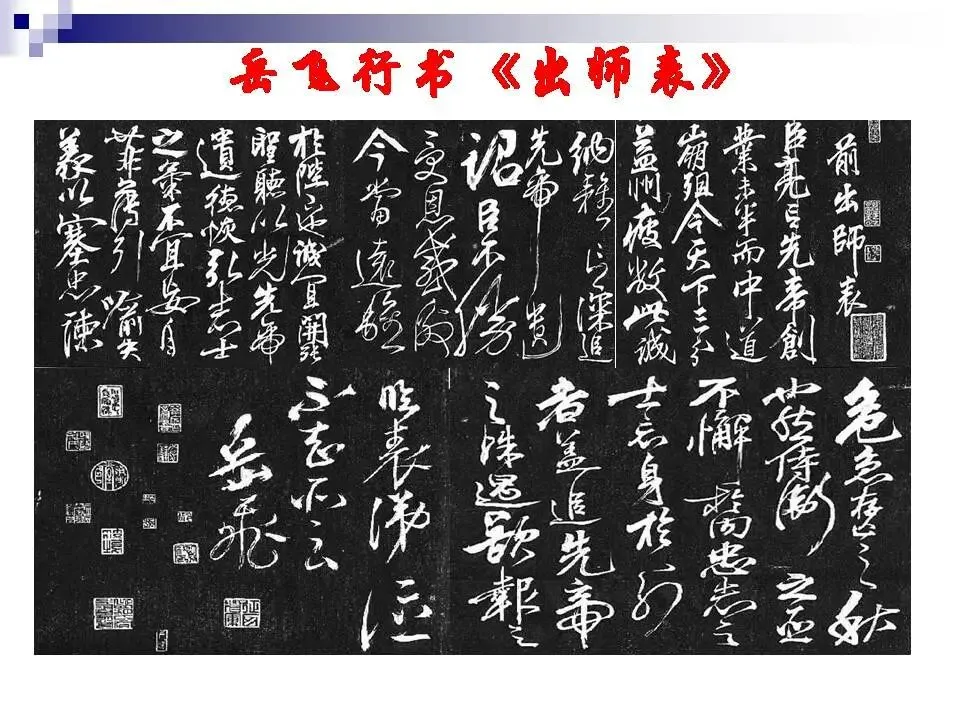 岳飞行书《出师表》
前出師表
臣亮言先帝創
業未半而中道
崩殂今天下三分
益州疲敝此誠
納雅言深追
先帝遺
詔臣不勝
受恩感激
今當遠離
於陛下誠宜開張
聖聽以光先帝
遺德恢弘志士
之氣不宜妄自
菲薄引喻失
義以塞忠諫
危急存亡之秋
也然侍衛之臣
不懈於內忠志之
士忘身於外
者蓋追先帝
之殊遇欲報之
臨表涕泣
不知所云
岳飛